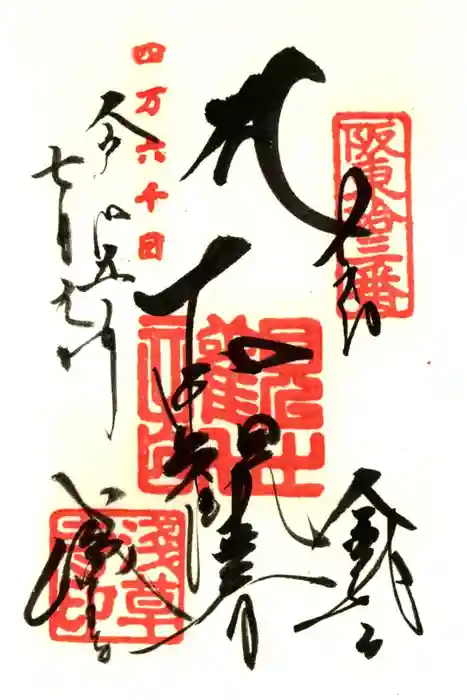 阪東拾三番
奉拝
聖観世音
金龍山
四万六千日
令和五年
七月九日
浅草寺
淺草寺印